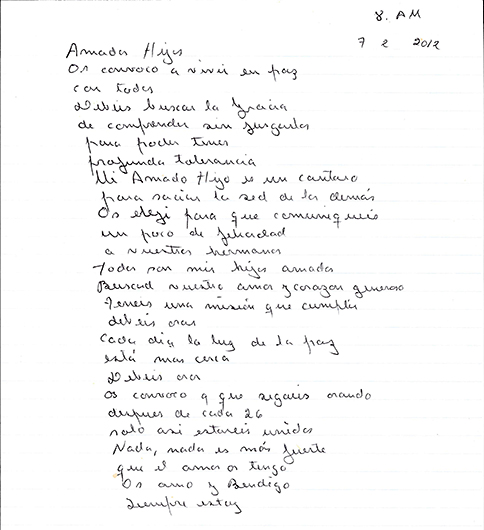 8. AM
7 2 2012
Amados Hijos
Os convoco a vivir en paz
con todos
Debeis buscar la gracia
de comprender sin juzgarlos
para poder tener
profunda tolerancia
Mi Amado Hijo es un cantaro
para saciar la sed de los demás
Os elegi para que comuniqueis
un poco de felicidad
a vuestros hermanos
Todos son mis hijos amados
Buscad vuestro amor y corazon generoso
Teneis una misión que cumplir
debeis orar
Cada dia la luz de la paz
está mas cerca
Debeis orar
Os convoco a que sigais orando
despues de cada 26
solo asi estareis unidos
Nada, nada es más fuerte
que el amor os tengo
Os amo y Bendigo
Siempre estoy